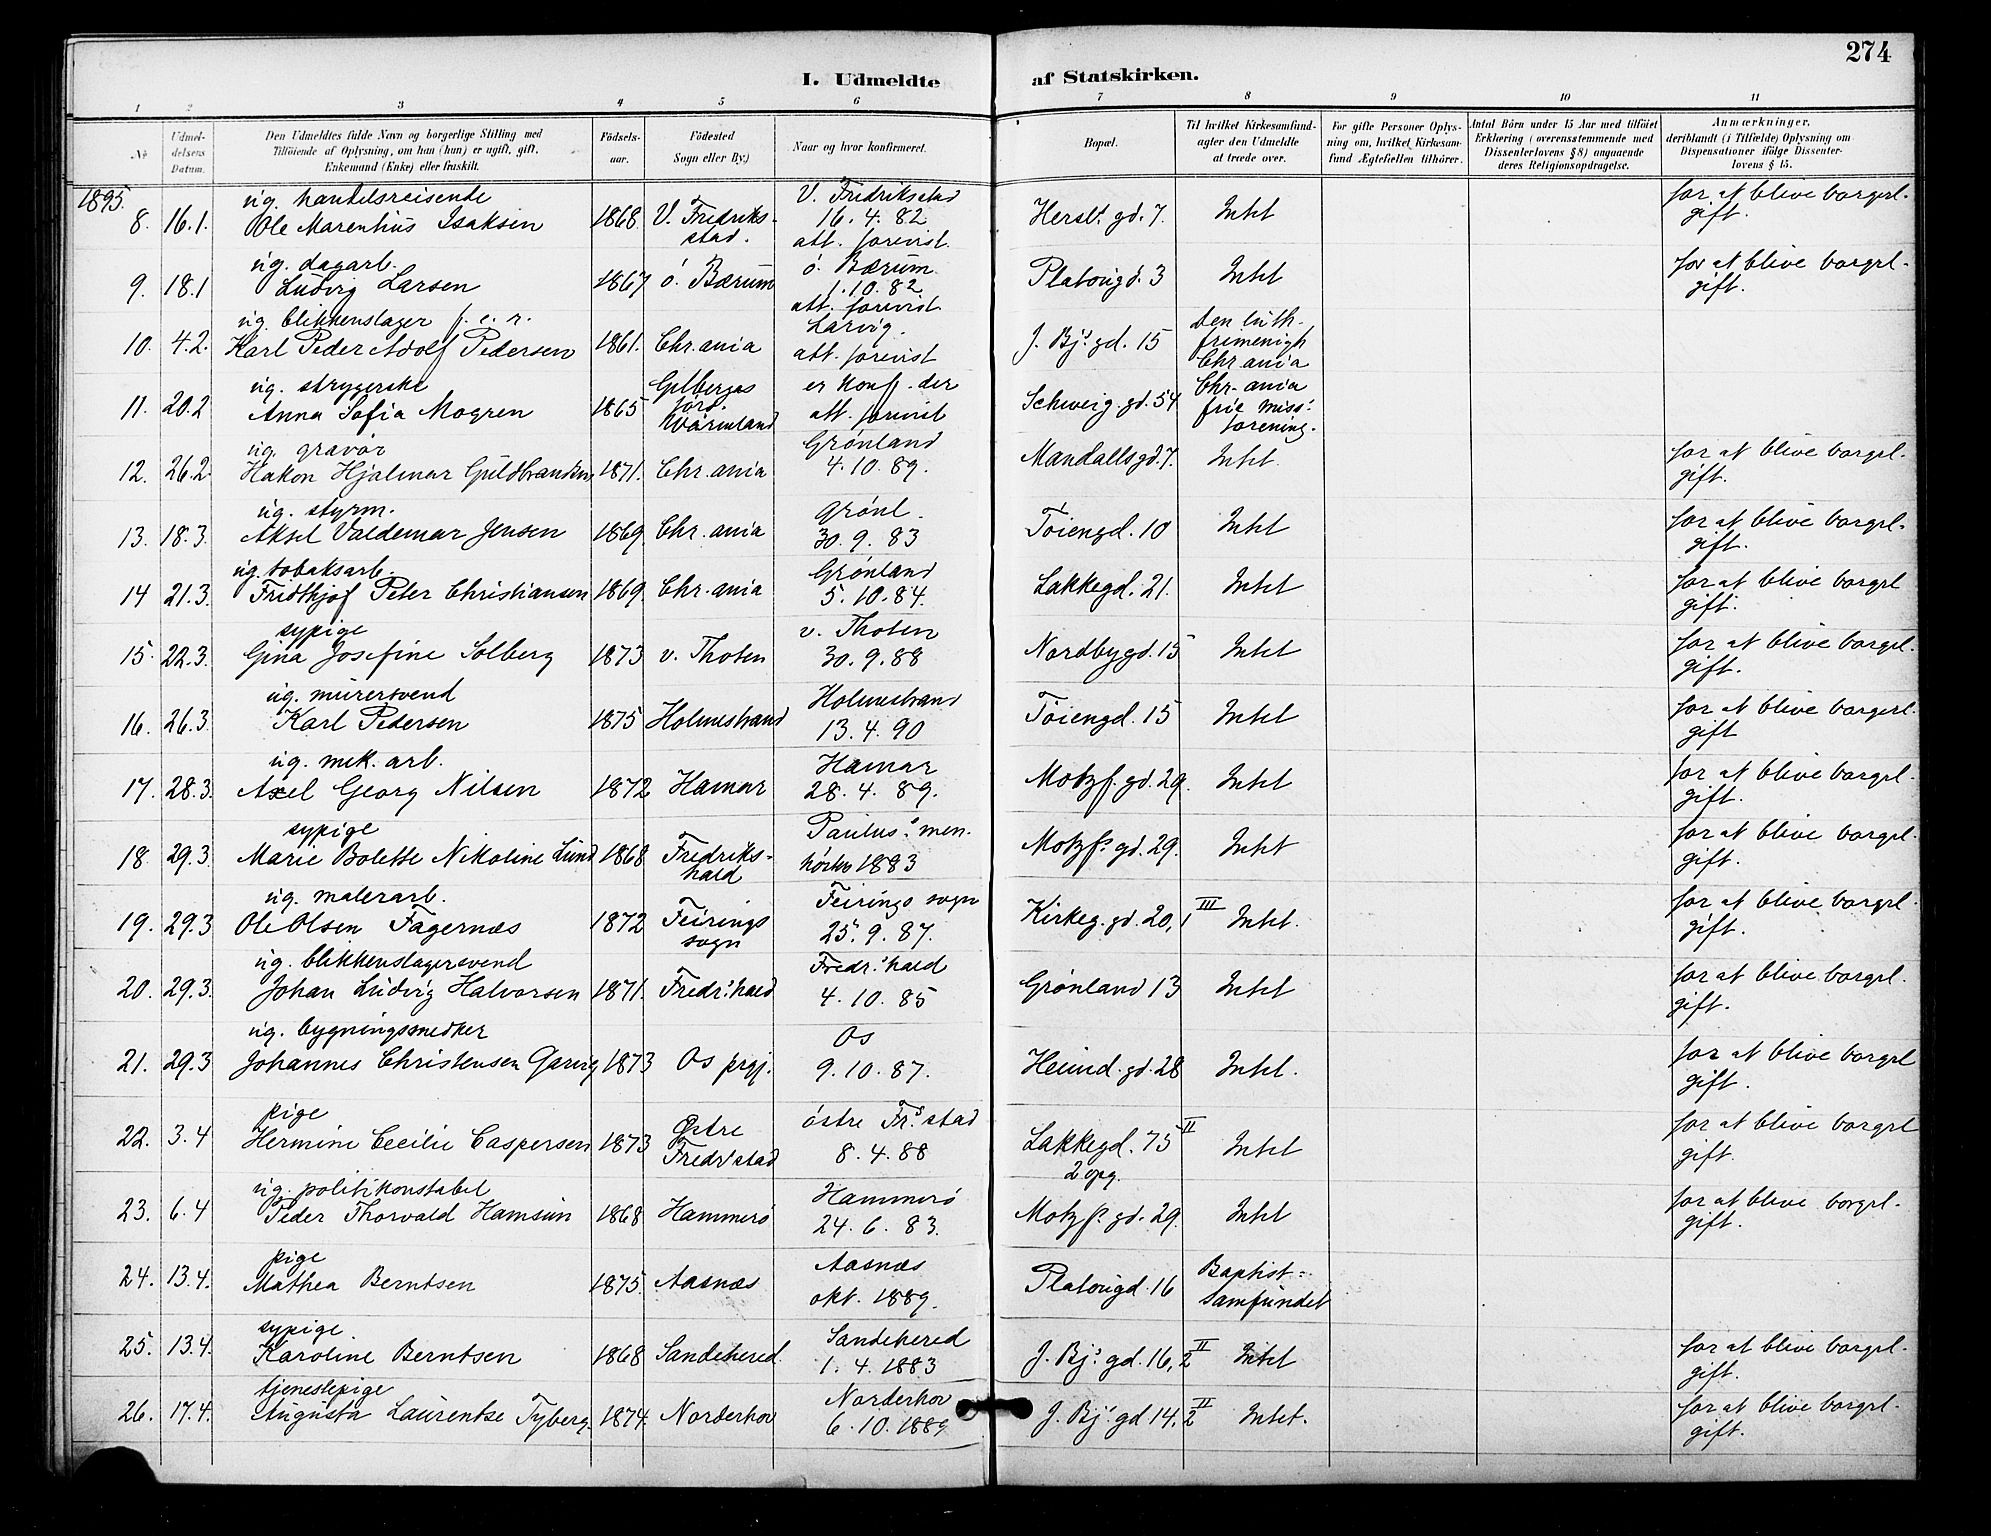 274
I. Udmeldte af Statskirken.
1 2 3 4 5 6 7 8 9 10 11
№
Udmel-
delsens
Datum.
Den Udmeldtes fulde Navn og borgerlige Stilling med
Tilföiende af Oplysning, om han (hun) er ugift, gift,
Enkemand (Enke) eller fraskilt.
Födsels-
aar.
Födested
Sogn eller By.)
Naar og hvor konfirmeret.
Bopæl.
Til hvilket Kirkesamfund-
agter den Udmeldte
at træde over.
For gifte Personer Oplys-
ning om, hvilket Kirkesam-
fund Ægtefællen tilhörer.
Antal Börn under 15 Aar med tilföiet
Erklæring (overensstemmende med
Dissenterlovens §8) angaaende
deres Religionsopdragelse.
Anmærkninger,
deriblandt (i Tilfælde) Oplysning om
Dispensationer ifölge Dissenter-
lovens § 15.
1895.
ug. handelsreisende V. Fredriksstad for at blive borgerl.
8. 16.1. Ole Marenhius Isaksen 1868 V. Fredriks- 16.4.82 Hersl. gd. 7. Intet gift.
stad. att. forevist.
ug. dagarb. ó. Bærum for at blive borgl.
9. 18.1 Ludvig Larsen 1867 ó. Bærum 1.10.82 Platougd. 3 Intet gift.
att. forevist
ug. blikkenslager f.e.r. Larvig. Den luth.
10. 4.2. Karl Peder Adolf Pedersen 1861. Chr.ania att. forevist J. Bj. gd. 15 frimenigh
Chr ania
ug. strygerske er konf. der Chr.ania
11. 20.2 Anna Sofia Mogren 1865 att. forevist Schweig. gd. 54 frie miss:
Wärmland forening.
ug. gravør Grønland for at blive borgl.
12. 26.2 Hakon Hjalmar Guldbrandsen 1871. Chr.ania 4.10.89. Mandallsgd. 7. Intet. gift.
ug. styrm. Grønl. for at blive borgl.
13. 18.3. Aksel Valdemar Jensen 1869 Chr.ania 30.9.83 Tøiengd. 10 Intet gift.
ug. tobaksarb. Grønland for at blive borgl
14 21.3. Fridthjof Peter Christiansen 1869 Chr.ania 5.10.84. Lakkegd. 21. Intet gift.
sypige v. Thoten for at blive borgl.
15. 22.3. Gina Josefine Solberg 1873 v. Thoten 30.9.88 Nordbygd. 15 Intet gift.
ug. murersvend Holmestrand for at blive borgerl.
16. 26.3. Karl Pedersen 1875 Holmestrand 13.4.90 Tøiengd. 15 Intet gift
ug. mek. arb. Hamar for at blive borgl.
17. 28.3. Axel Georg Nilsen 1872 Hamar 28.4.89. Motzf. gd. 29. Intet gift.
sypige Paulus. men. for at blive borgl.
18. 29.3. Marie Bolette Nikoline Lund 1868 Fredriks- 1883 Motzfs gd. 29. Intet gift.
hald
ug. malerarb. Feirings sogn for at blive borgl.
19. 29.3 Ole Olsen Fagernæs 1872 Feirings 25.9.87. Kirkeg. gd. 20, 1 III Intet. gift.
sogn
ug. blikkenslagersvend Fredr.hald for at blive borgl.
20. 29.3. Johan Ludvig Halvorsen 1871. Fredr.hald 4.10.85 Grønland 13 Intet gift.
ug. bygningssnedker Os for at blive borgl
21. 29.3 Johannes Christensen 1873 Os prgj. 9.10.87. Heimd. gd. 28 Intet. gift.
pige Østre østre Fr.stad for at blive borgl
22. 3.4 Hermine Cecilie Caspersen 1873 Fredr.stad 8.4.88 Lakkegd. 75 II Intet gift.
2 opg.
ug. politikonstabel Hammerø for at blive borgl.
23. 6.4 Peder Thorvald Hamsun 1868 Hammerø 24.6.83. Motzfs. gd. 29. Intet gift.
pige Aasnæs Baptist-
24. 13.4. Mathea Berntsen 1875. Aasnæs okt. 1889. Platougd. 16 samfundet
sypige. Sandehered for at blive borgl.
25. 13.4. Karoline Berntsen 1868 Sandehered. 1.4.1883 J. Bj. gd. 16, 2 II Intet gift.
tjenestepige Norderhov for at blive borgl.
26. 17.4. Augusta Laurentse Tyberg. 1874. Norderhov 6.10.1889 J. Bj. gd 14, 2 II Intet. gift.